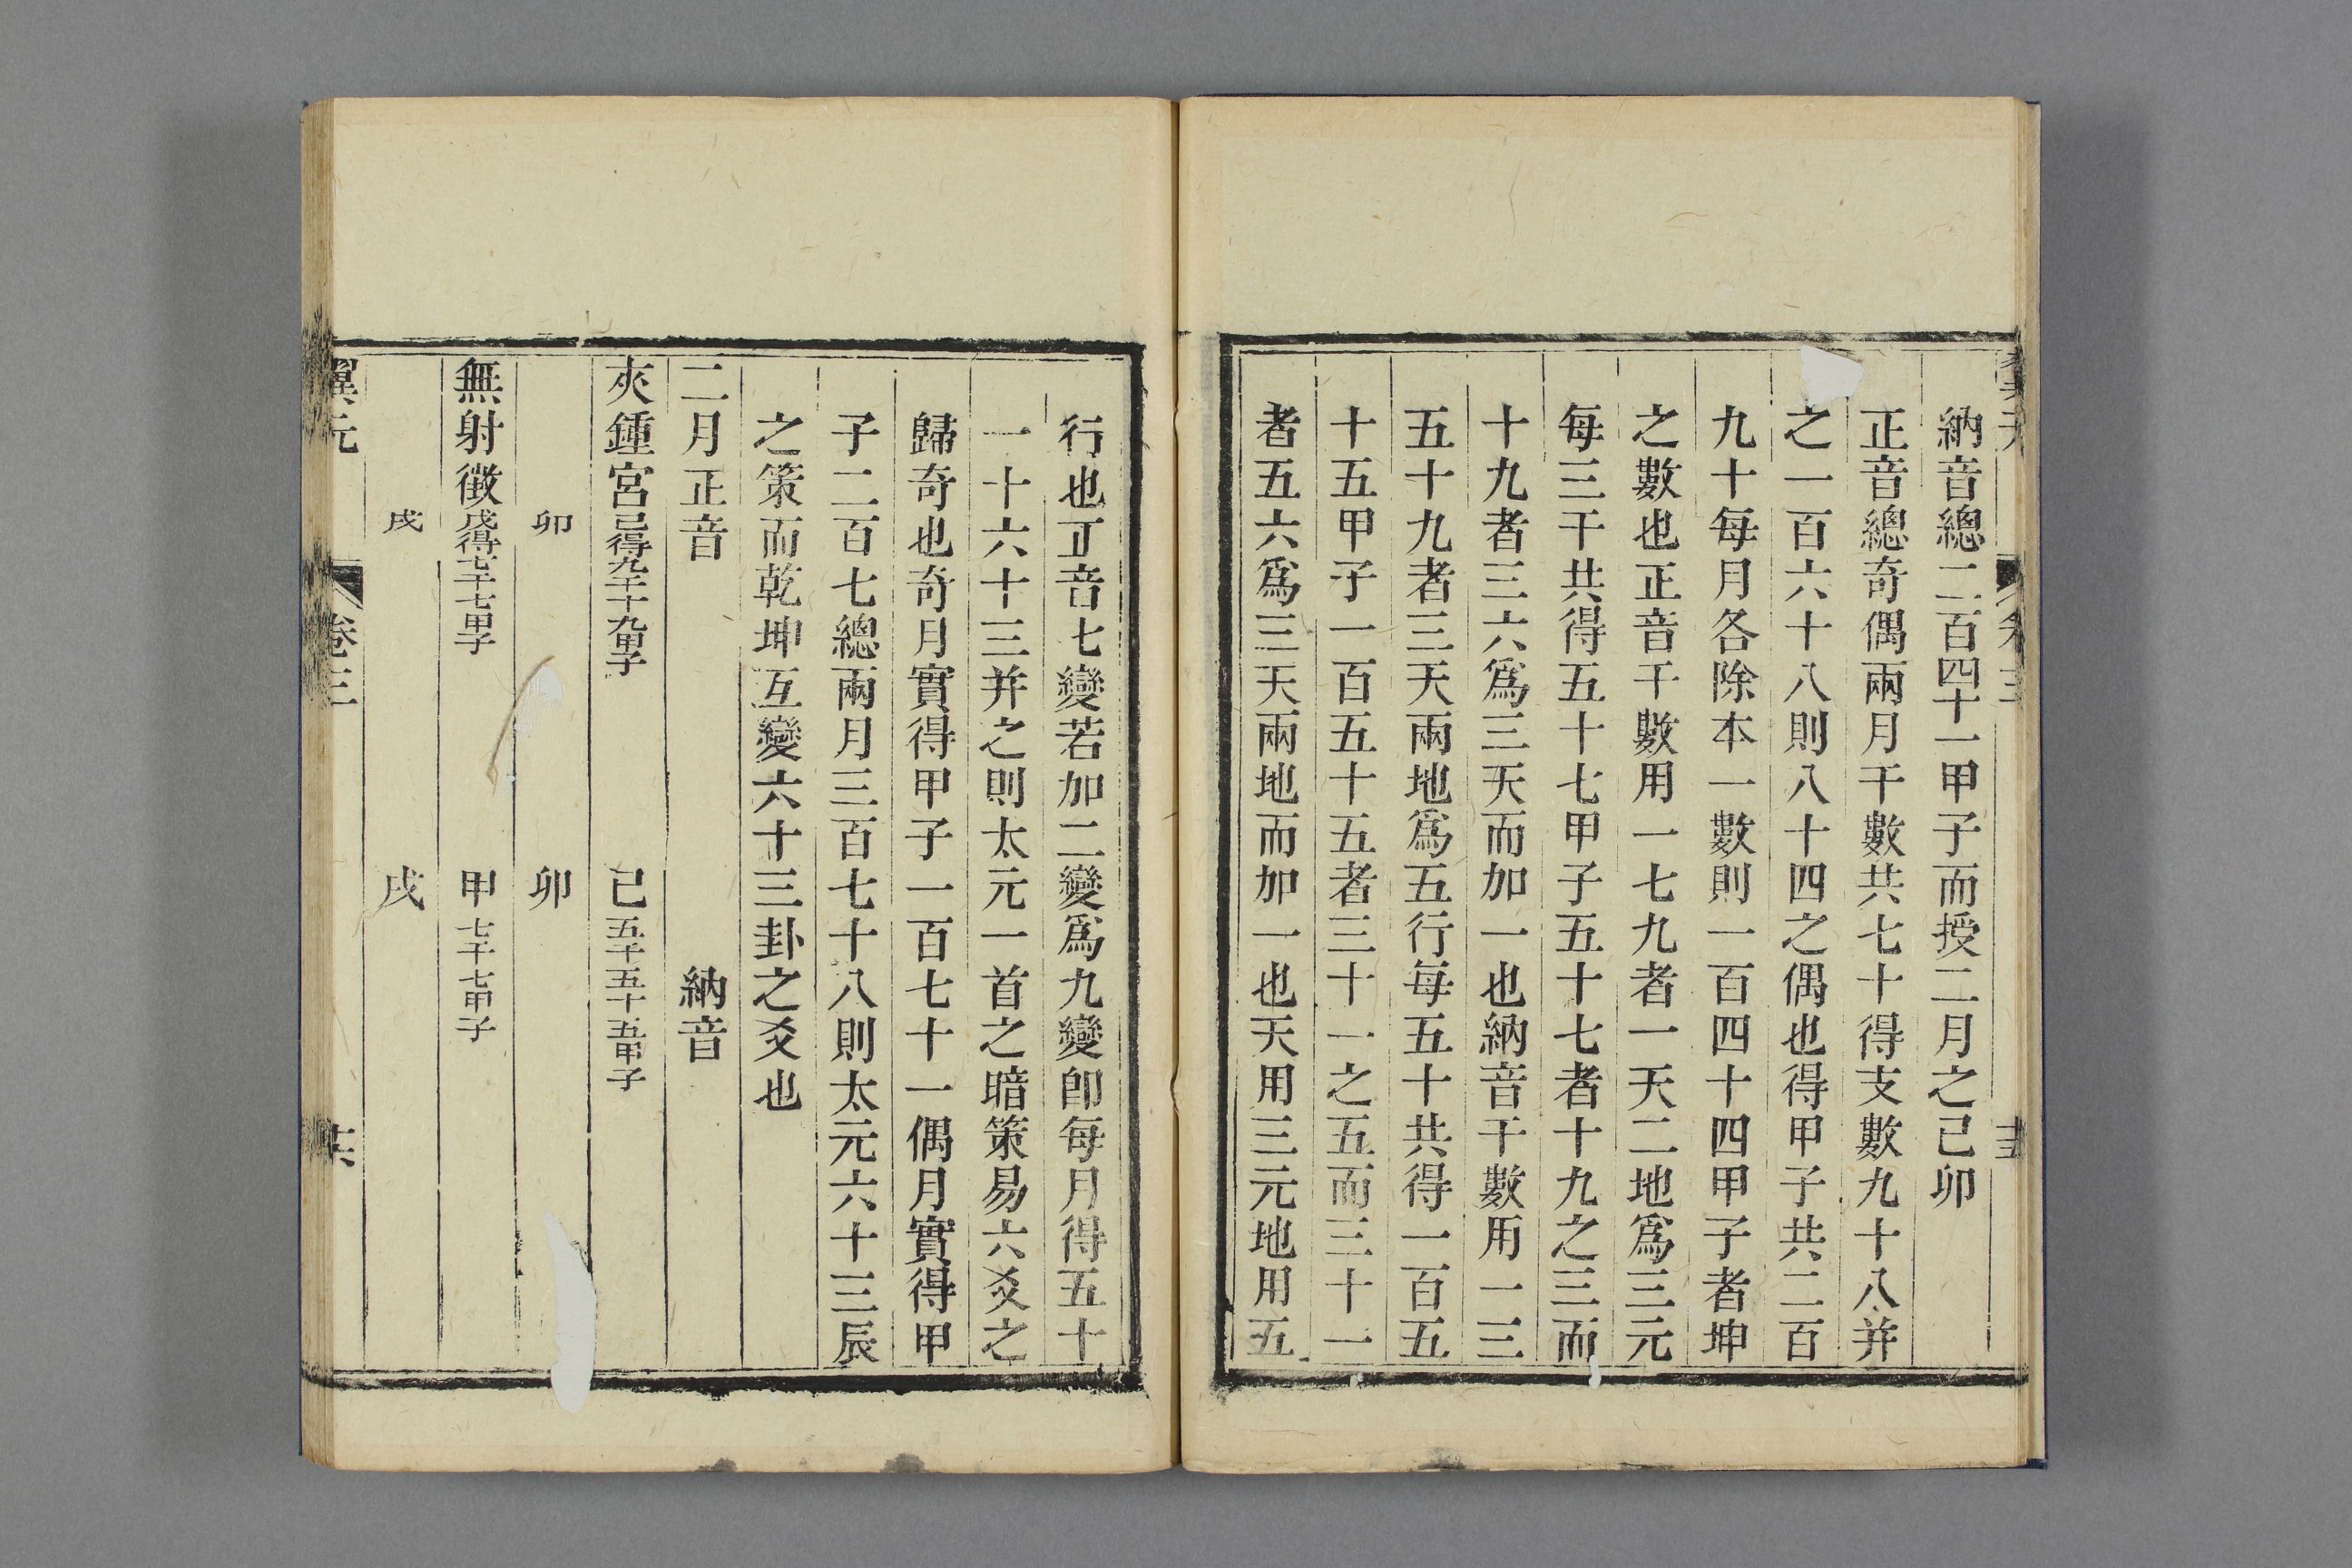 納音總二百四十一甲子而授二月之己卯
正音總奇偶兩月干數共七十得支數九十八并
之一百六十八則八十四之偶也得甲子共二百
九十每月各除本一數則一百四十四甲子者坤
之數也正音干數用一七九者一天二地爲三元
每三干共得五十七甲子五十七者十九之三而
十九者三六爲三天而加一也納音干數用一三
五十九者三天兩地爲五行每五十共得一百五
十五甲子一百五十五者三十一之五而三十一
者五六爲三天兩地而加一也天用三元地用五
行也正音七變若加二變爲九變卽每月得五十
一十六十三并之則太元一首之暗策易六爻之
歸奇也奇月實得甲子一百七十一偶月實得甲
子二百七總兩月三百七十八則太元六十三辰
之策而乾坤互變六十三卦之爻也
二月正音 納音
夾鍾宮己得九干十九甲子 己五干五十五甲子
卯 卯
無射徵戊得七干七甲子 甲七干七甲子
戌 戌
翼元 卷三